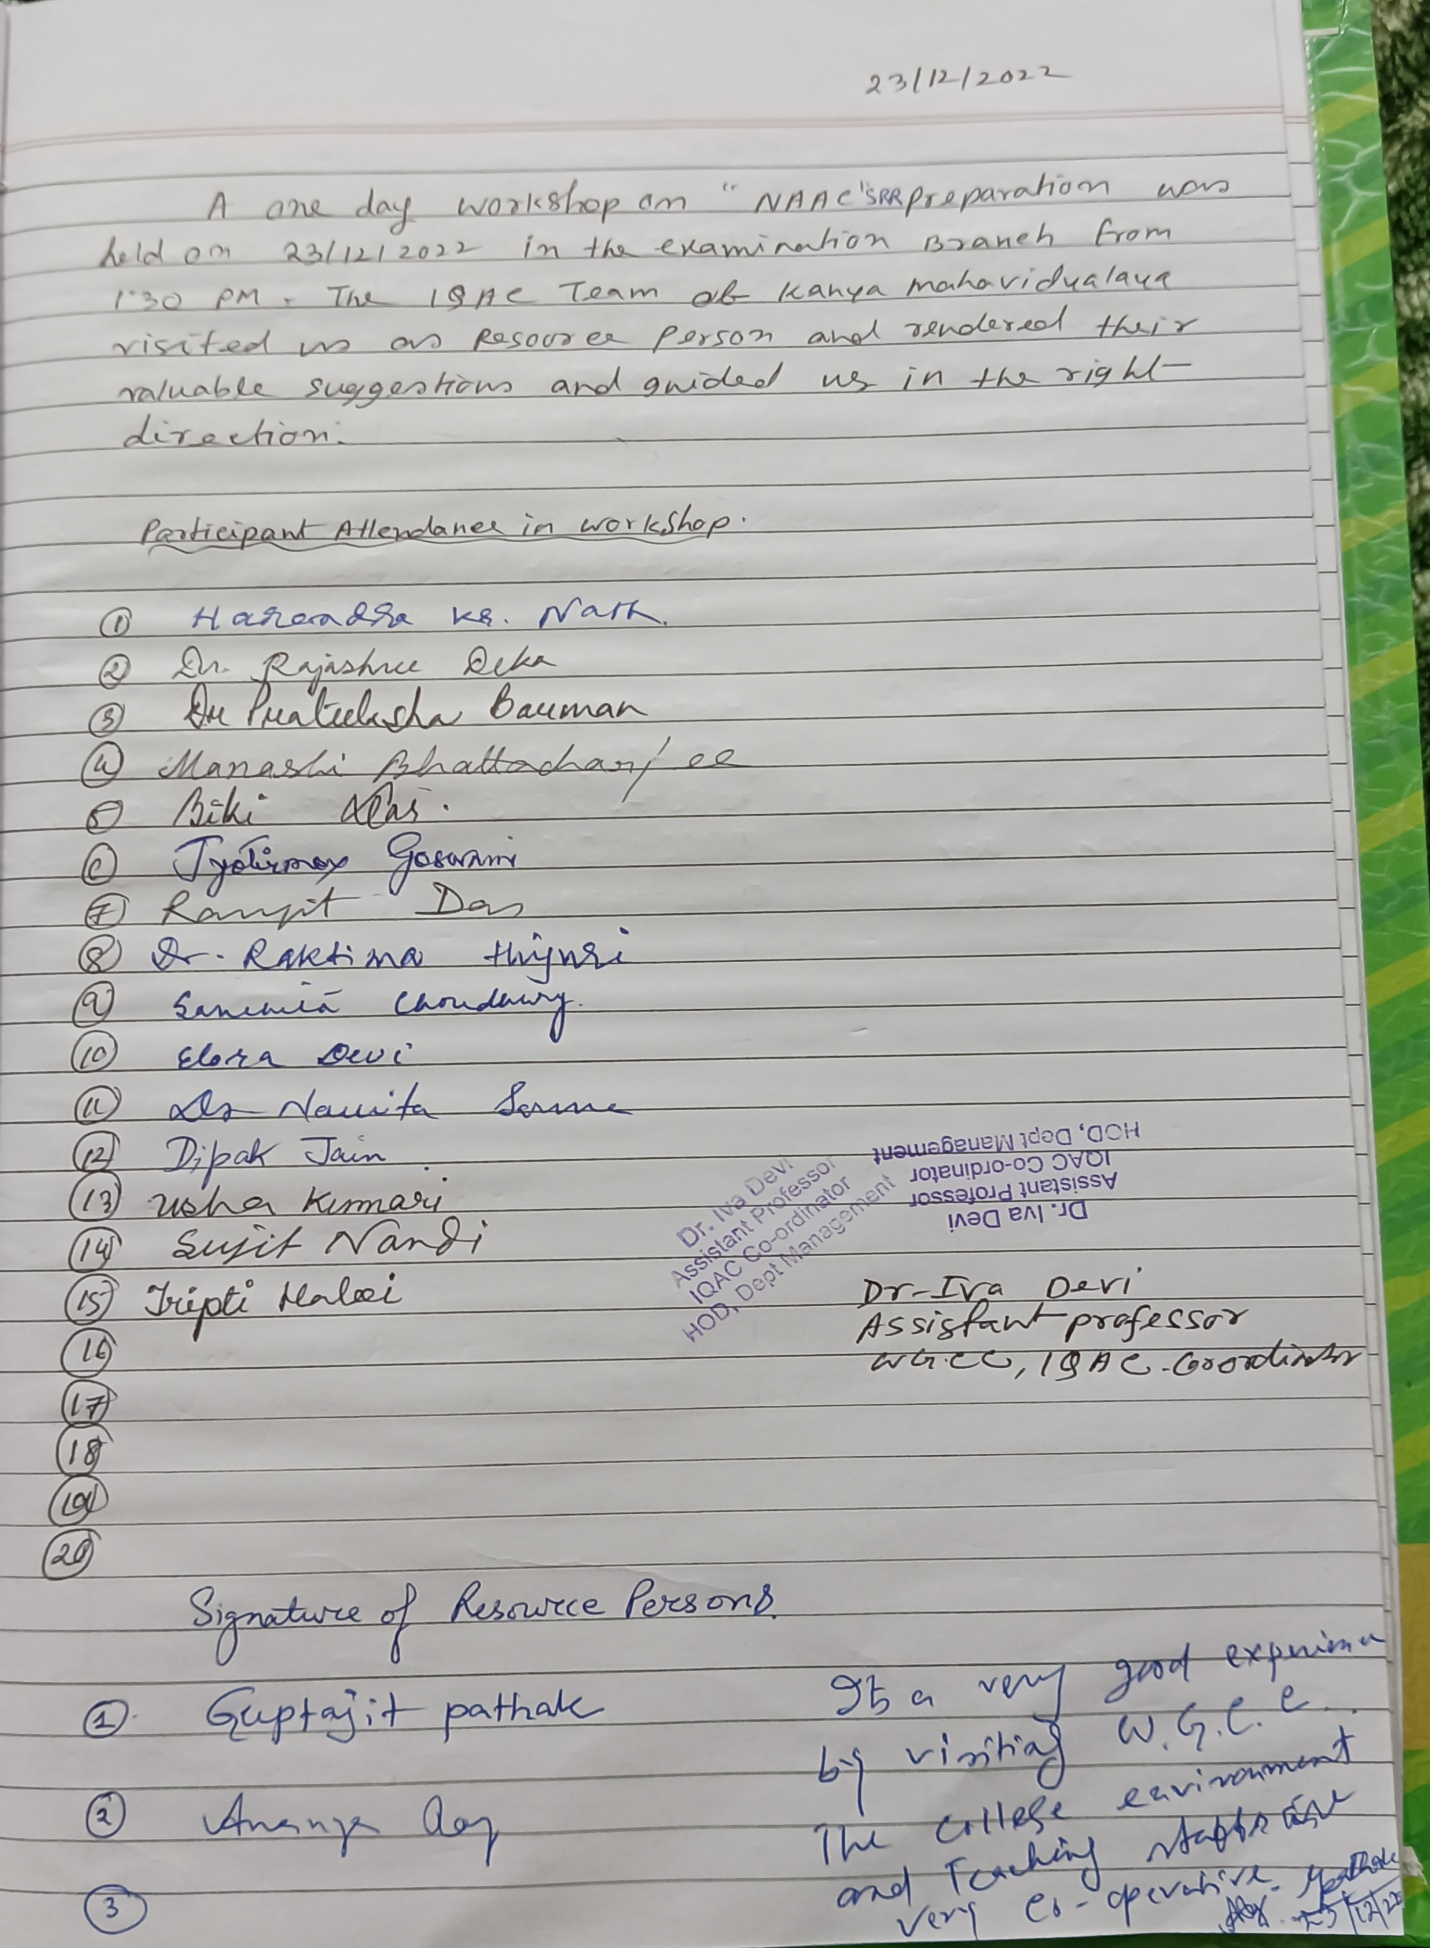 23/12/2022
A one day workshop on "NAAC SRR preparation was
held on 23/12/2022 in the examination Branch from
1:30 PM. The IQAC Team of Kanya mahavidyalaya
visited us as Resource Person and rendered their
valuable suggestions and guided us in the right
direction.
Participant Attendance in workshop.
① Harendra Kr. Nath.
② Dr. Rajashree Deka
③ Dr Prateeksha Barman
④ Manashi Bhattacharjee
⑤ Biki Das.
⑥ Jyotirmoy Goswami
⑦ Ranjit Das
⑧ Dr. Raktima
⑨ Choudhury.
⑩ Elora Devi
⑪ Dr Namita Sarma
⑫ Dipak Jain
⑬ Usha Kumari
⑭ Sujit Nandi
⑮ Tripti Haloi
Dr. Iva Devi
Assistant Professor
IQAC Co-ordinator
HOD, Dept Management
Dr. Iva Devi
Assistant Professor
IQAC Co-ordinator
HOD, Dept Management
Dr-Iva Devi
Assistant professor
WGCC, IQAC-Coordinator
⑯
⑰
⑱
⑲
⑳
Signature of Resource Persons.
① Guptajit pathak
② Ananya
③
Its a very good
by visiting W.G.C.C.
The College environment
and Teaching staffs are
very co-operative.
23/12/22